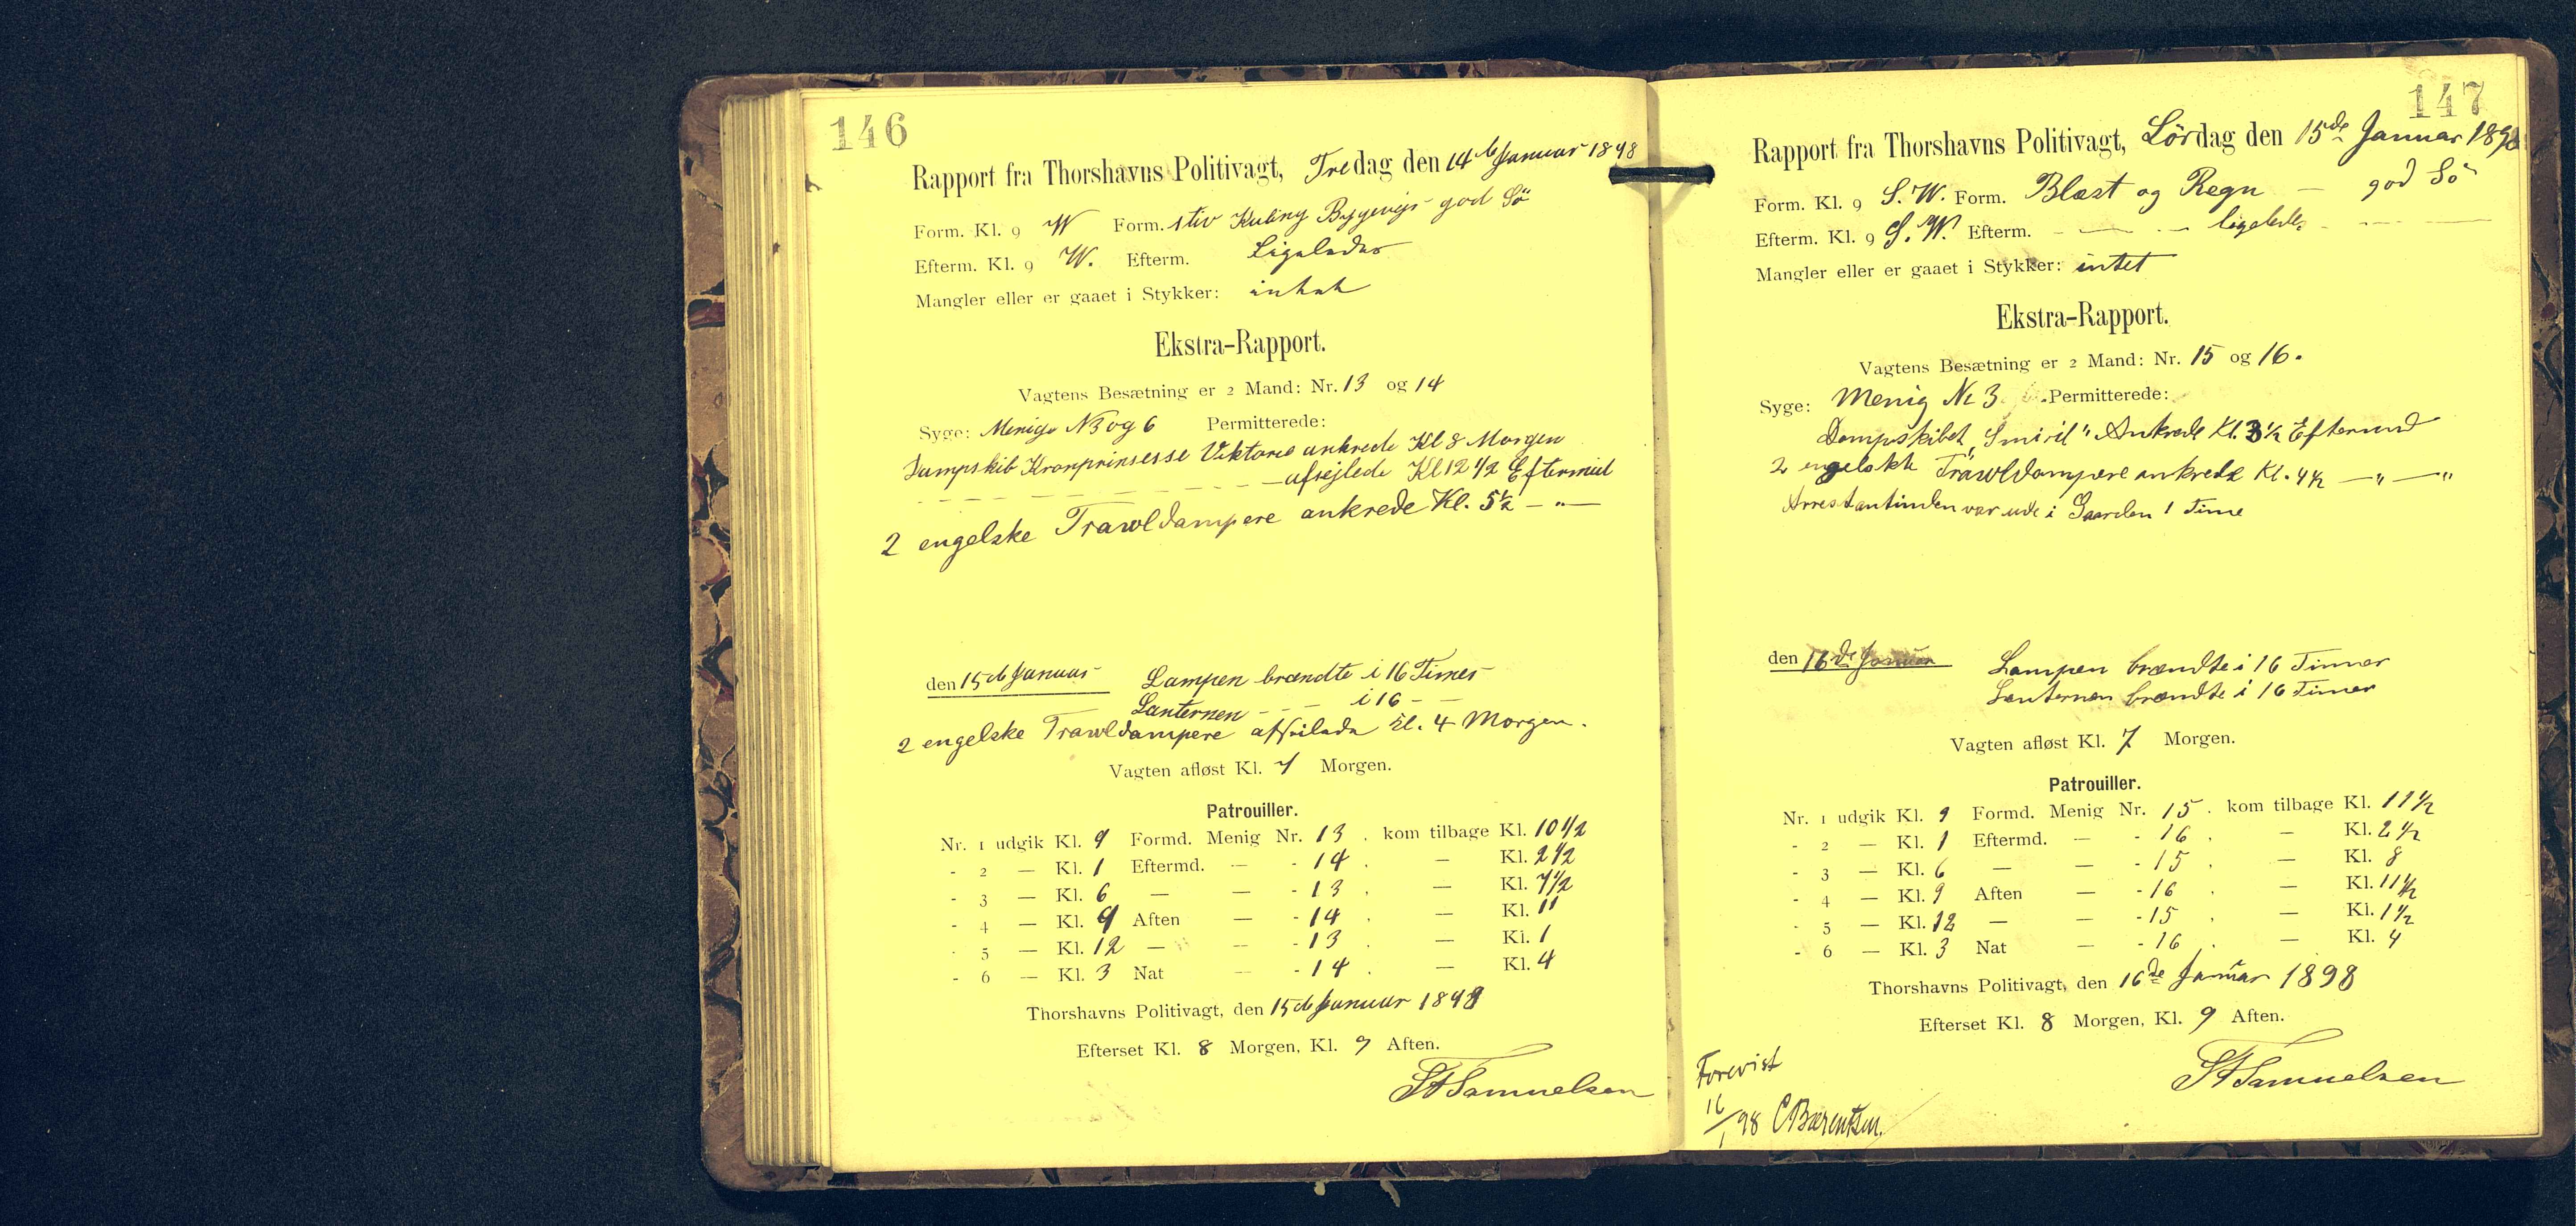 146
Rapport fra Thorshavns Politivagt, Fredag den 14de Januar 1898
Form. Kl. 9 W Form. stiv Kuling Bygevejr god Sö
Efterm. Kl. 9 W. Efterm. Ligeledes
Mangler eller er gaaet i Stykker: intet
Ekstra-Rapport.
Vagtens Besætning er 2 Mand: Nr. 13 og 14
Syge: Menige N 3 og 6 Permitterede:
Dampskib Kronprinsesse Viktoria ankrede Kl 8 Morgen
— — — — — — afsejlede Kl 12 1/2 Eftermid
2 engelske Trawldampere ankrede Kl. 5 1/2 — „ —
den 15de Januar Lampen brændte i 16 Timer
Lanternen — — — i 16 — —
2 engelske Trawldampere afseilede Kl. 4 Morgen.
Vagten afløst Kl. 7 Morgen.
Patrouiller.
Nr. 1 udgik Kl. 9 Formd. Menig Nr. 13 . kom tilbage Kl. 10 1/2
- 2 — Kl. 1 Eftermd. — - 14 . — Kl. 2 1/2
- 3 — Kl. 6 — — - 13 . — Kl. 7 1/2
- 4 — Kl. 9 Aften — - 14 . — Kl. 11
- 5 — Kl. 12 — — - 13 . — Kl. 1
- 6 — Kl. 3 Nat — - 14 . — Kl. 4
Thorshavns Politivagt, den 15de Januar 1898
Efterset Kl. 8 Morgen, Kl. 9 Aften.
Samuelsen
147
Rapport fra Thorshavns Politivagt, Lördag den 15de Januar 1898
Form. Kl. 9 S. W. Form. Blæst og Regn — god Sö
Efterm. Kl. 9 S. W. Efterm. — — — ligeledes — — —
Mangler eller er gaaet i Stykker: intet
Ekstra-Rapport.
Vagtens Besætning er 2 Mand: Nr. 15 og 16.
Syge: Menig Nr 3 Permitterede:
Dampskibet „Smiril" Ankrede Kl. 3 1/2 Eftermd
2 engelske Trawldampere ankrede Kl. 4 1/2 — „ — „
Arrestantinden var ude i Gaarden 1 Time
den 16de Januar Lampen brændte i 16 Timer
Lanternen brændte i 16 Timer
Vagten afløst Kl. 7 Morgen.
Patrouiller.
Nr. 1 udgik Kl. 9 Formd. Menig Nr. 15 . kom tilbage Kl. 11 1/2
- 2 — Kl. 1 Eftermd. — - 16 . — Kl. 2 1/2
- 3 — Kl. 6 — — - 15 . — Kl. 8
- 4 — Kl. 9 Aften — - 16 . — Kl. 11 1/2
- 5 — Kl. 12 — — - 15 . — Kl. 1 1/2
- 6 — Kl. 3 Nat — - 16 . — Kl. 4
Thorshavns Politivagt, den 16de Januar 1898
Efterset Kl. 8 Morgen, Kl. 9 Aften.
Samuelsen
Forevist
16/1 98 CBærentsen.